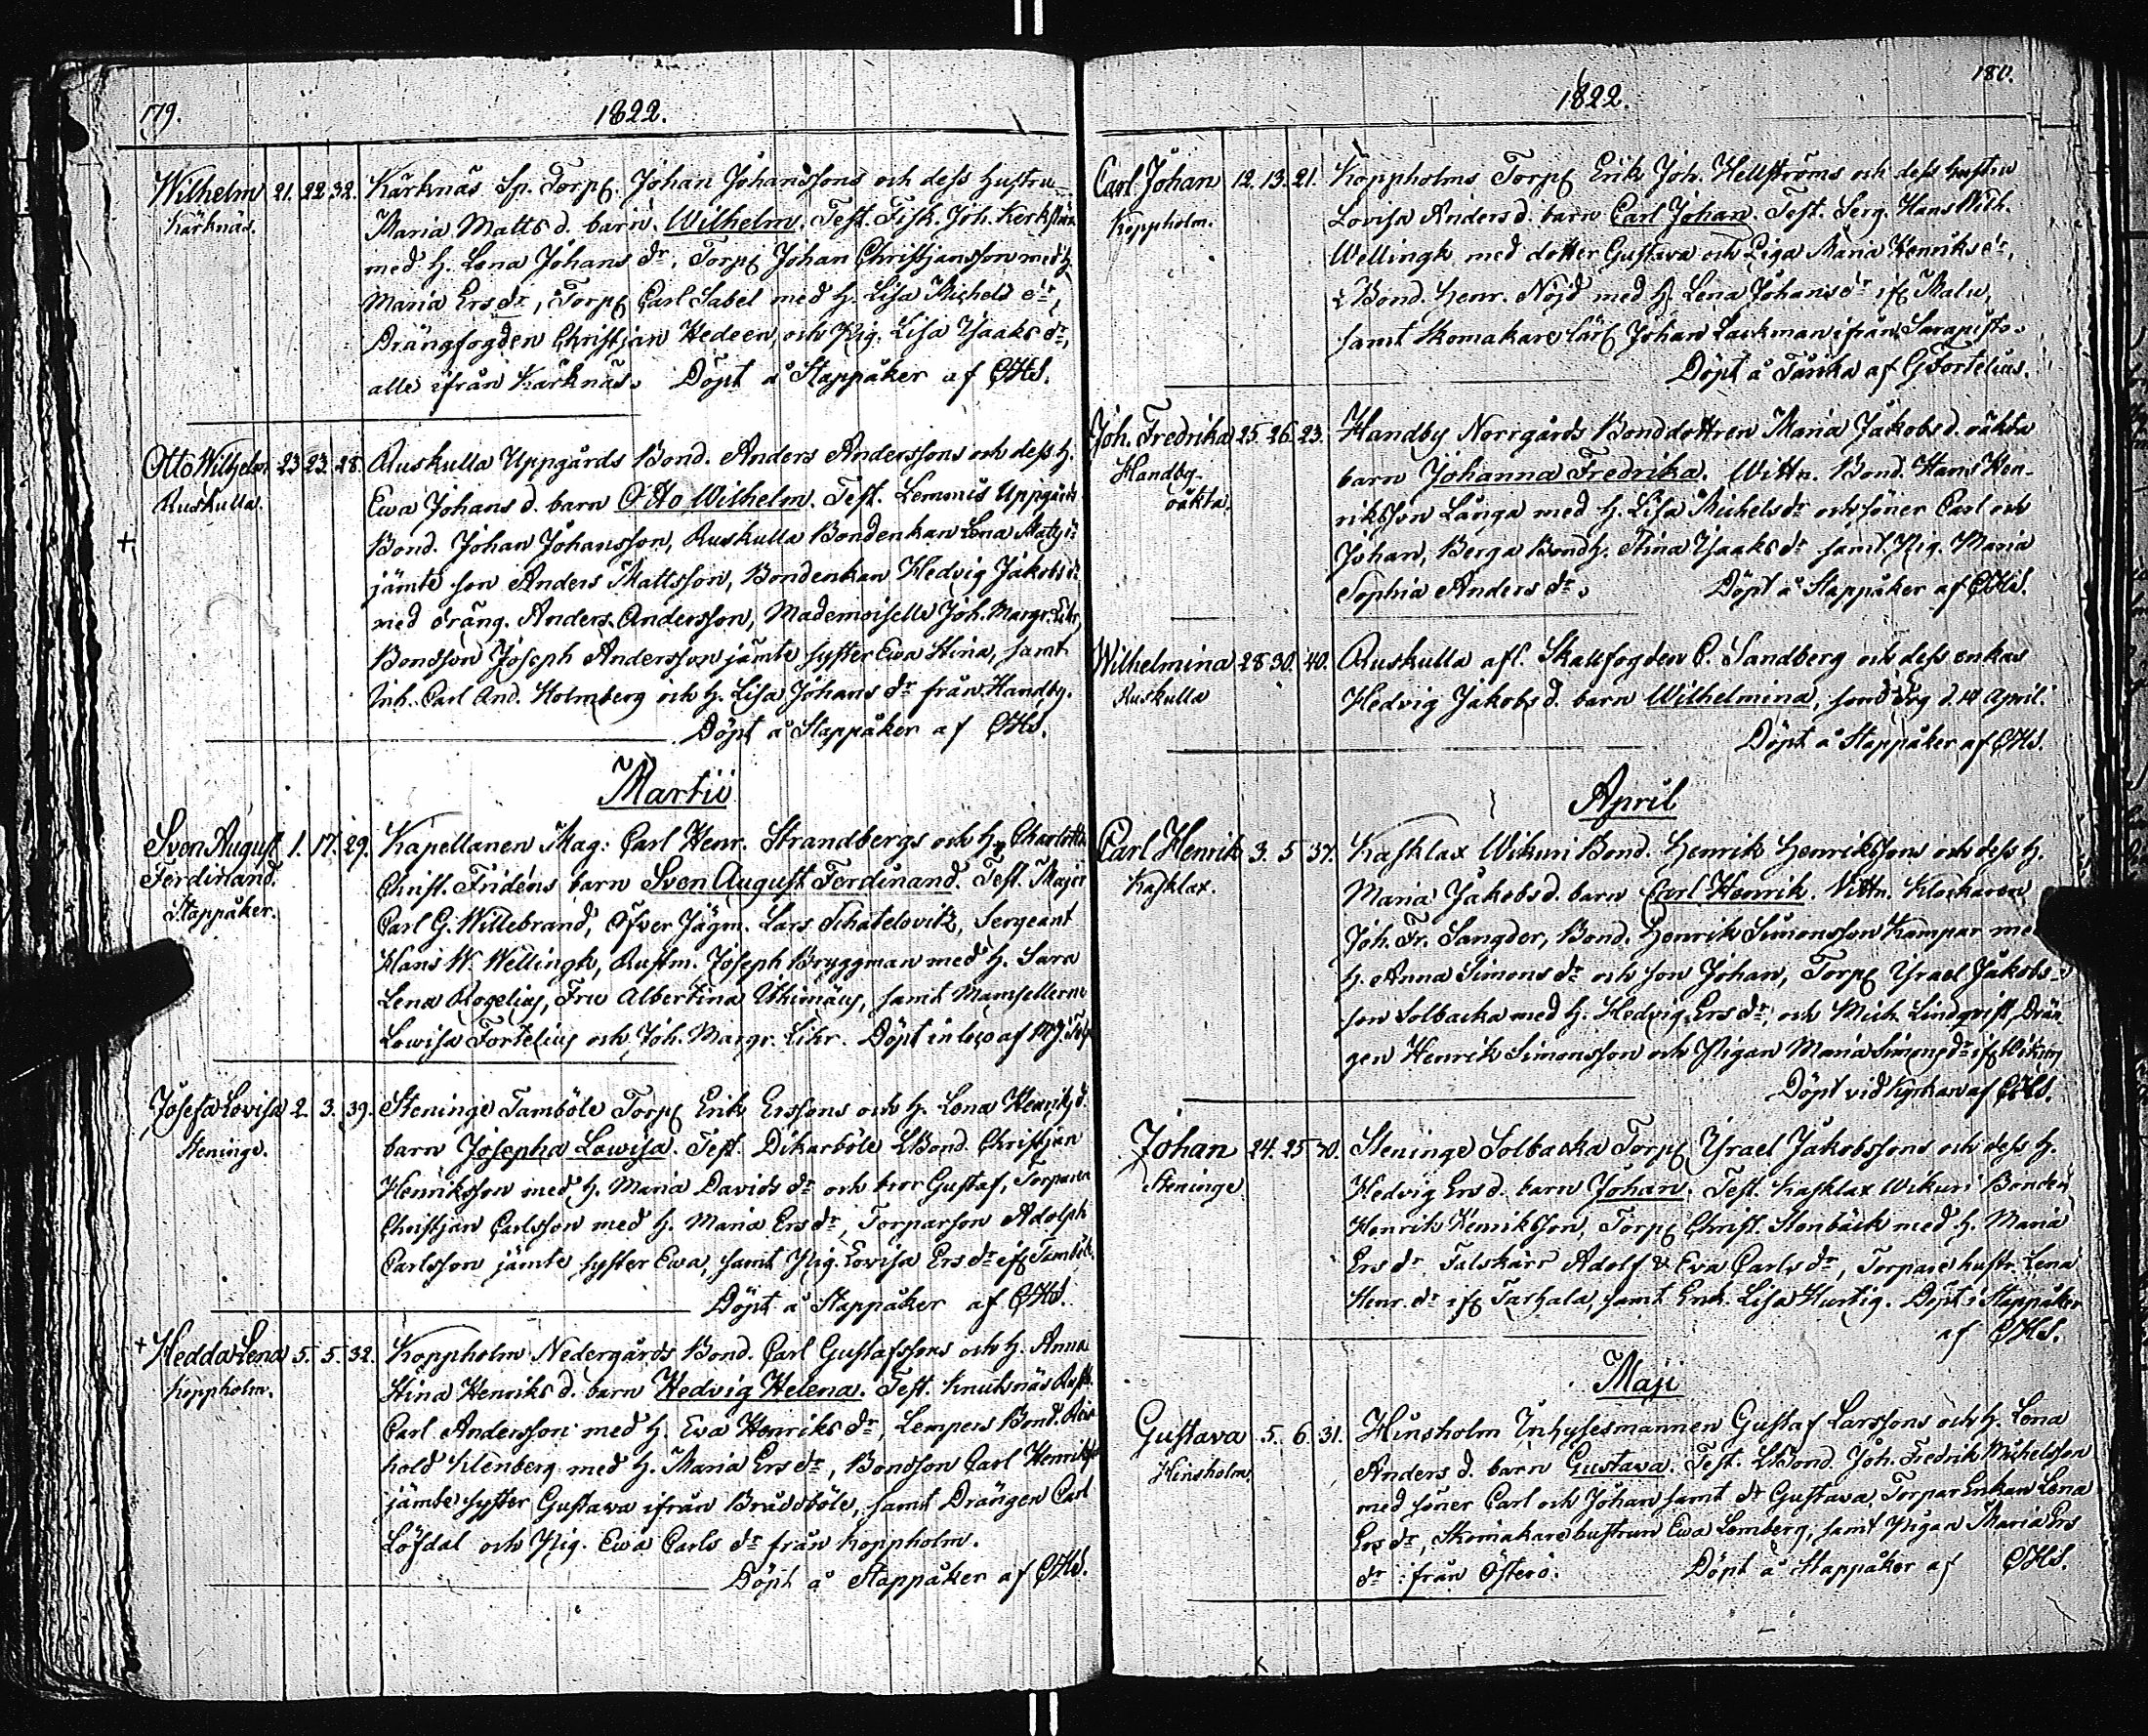 179.
1822.
Wilhelm 21. 22. 32. Kärknäs Sp. Torp. Johan Johanssons och dess hustru
Kärknäs. Maria Matts d. barn Wilhelm. Test. Fisk. Joh.
med h. Lena Johans dr, Torp. Johan Christjansson med h.
Maria Ers dr, Torp. Carl Sabel med h. Lisa Michels dr,
Drängfogden Christjan Hedeen, och Pig. Lisa Ysaaks dr,
alle ifrån Kärknäs. Döpt å Stappåker af CHS.
Otto Wilhelm 23 23. 28. Ruskulla Uppgårds Bond. Anders Anderssons och dess h.
Ruskulla. Ewa Johans d. barn Otto Wilhelm. Test. Lemnis Uppgårds
+ Bond. Johan Johansson, Ruskulla Bondenkan Lena
jämte son Anders Mattsson, Bondenkan Hedvig Jakobs dr
med dräng. Anders Andersson, Mademoiselle Joh. Margr. Lihr,
Bondson Joseph Andersson jämte syster Ewa Stina, samt
Inh. Carl And. Holmberg och h. Lisa Johans dr från Handby.
Döpt å Stappåker af CHS.
Martii
Sven August 1. 17. 29. Kapellanen Mag: Carl Henr. Strandbergs och h. Charlotta
Ferdinand. Christ. Fridéns barn Sven August Ferdinand. Test. Major
Stappåker. Carl G. Willebrand, Öfver Jägm. Lars Schatelovitz, Sergeant
Hans W. Wellingk, Rustm. Joseph Bryggman med h. Sara
Lena Rogelius, Fru Albertina Ithimæus, samt Mamsellerne
Lowisa Fortelius och Joh. Margr. Lihr. Döpt in loco af
Josefa Lovisa 2. 3. 39. Steninge Tamböle Torp. Erik Erssons och h. Lena Henriks d.
Steninge. barn Josepha Lowisa. Test. Dikarböle LBond. Christjan
Henriksson med h. Maria Davids dr och bror Gustaf, Torparen
Christjan Carlsson med h. Maria Ers dr, Torparson Adolph
Carlsson jämte syster Ewa, samt Pig. Lovisa Ers dr ifr Tamböle.
Döpt å Stappåker af CHS.
+ Hedda Lena 5. 5. 32. Koppholm Nedergårds Bond. Carl Gustafssons och h. Anna
Koppholm. Stina Henriks d. barn Hedvig Helena. Test. Knuknäs Rust.
Carl Andersson med h. Ewa Henriks dr, Lempers Bond. Rein
hold Klenberg med h. Maria Ers dr, Bondson Carl Henriks
jämte syster Gustava ifrån Brudsböle, samt Drängen Carl
Löfdal och Pig. Ewa Carls dr från Koppholm.
Döpt å Stappåker af CHS.
180.
1822.
Carl Johan 12. 13. 21. Koppholms Torp. Erik Joh. Hellströms och dess hustru
Koppholm. Lovisa Anders d. barn Carl Johan. Test. Serg. Hans Wilh.
Wellingk med dotter Gustava och Piga Maria Henriks dr,
Bond. Henr. Nöjd med h. Lena Johans dr ifr Malu,
samt Skomakare lärl Johan Lackman ifrån Sarapisto.
Döpt å Tanka af GFortelius.
Joh. Fredrika 25. 26. 23. Handby Norrgårds Bonddottren Maria Jakobs d. oäkta
Handby. barn Johanna Fredrika. Wittn. Bond. Hans Hen-
oäkta. riksson Långa med h. Lisa Michels dr och söner Carl och
Johan, Berga Bondh. Stina Ysaaks dr samt Pig. Maria
Sophia Anders dr. Döpt å Stappåker af CHS.
Wilhelmina 28 30. 40. Ruskulla afl. Skallfogden C. Sandberg och dess enkas
Ruskulla Hedvig Jakobs d. barn Wilhelmina, d. 14 April.
Döpt å Stappåker af CHS.
April
Carl Henrik 3. 5 37. Kasklax Wikuri Bond. Henrik Henrikssons och dess h.
Kasklax. Maria Jakobs d. barn Carl Henrik. Wittn. Klockaren
Joh. Fr. Sangder, Bond. Henrik Simonsson Kampar
h. Anna Simons dr och son Johan, Torp. Ysrael Jakobs-
son Solbacka med h. Hedvig Ers dr, och Mich. Lindqvist, Drän-
gen Henrik Simonsson och Pigan Maria Simons dr ifr Wikuri
Döpt vid Kyrkan af CHS.
Johan 24. 25 30. Steninge Solbacka Torp. Ysrael Jakobssons och dess h.
Steninge Hedvig Ers d. barn Johan. Test. Kasklax Wikuri Bonden
Henrik Henriksson, Torp. Christ. Stenbäck med h. Maria
Ers dr Falskärr Adolf & Eva Carls dr, Torpare hustr. Lena
Henr. dr ifr Tarhala, samt Enk. Lisa Hurtig. Döpt i Stappåker
af CHS.
Maji
Gustava 5. 6. 31. Hinsholm Inhysesmannen Gustaf Larssons och h. Lena
Hinsholm. Anders d. barn Gustava. Test. LBond. Joh. Fredrik Michelsson
med söner Carl och Johan samt dr Gustava, Torpar Enkan Lena
Ers dr, Skomakare hustrun Ewa Lemberg, samt Pigan Maria Ers
dr ifrån Österö. Döpt å Stappåker af CHS.